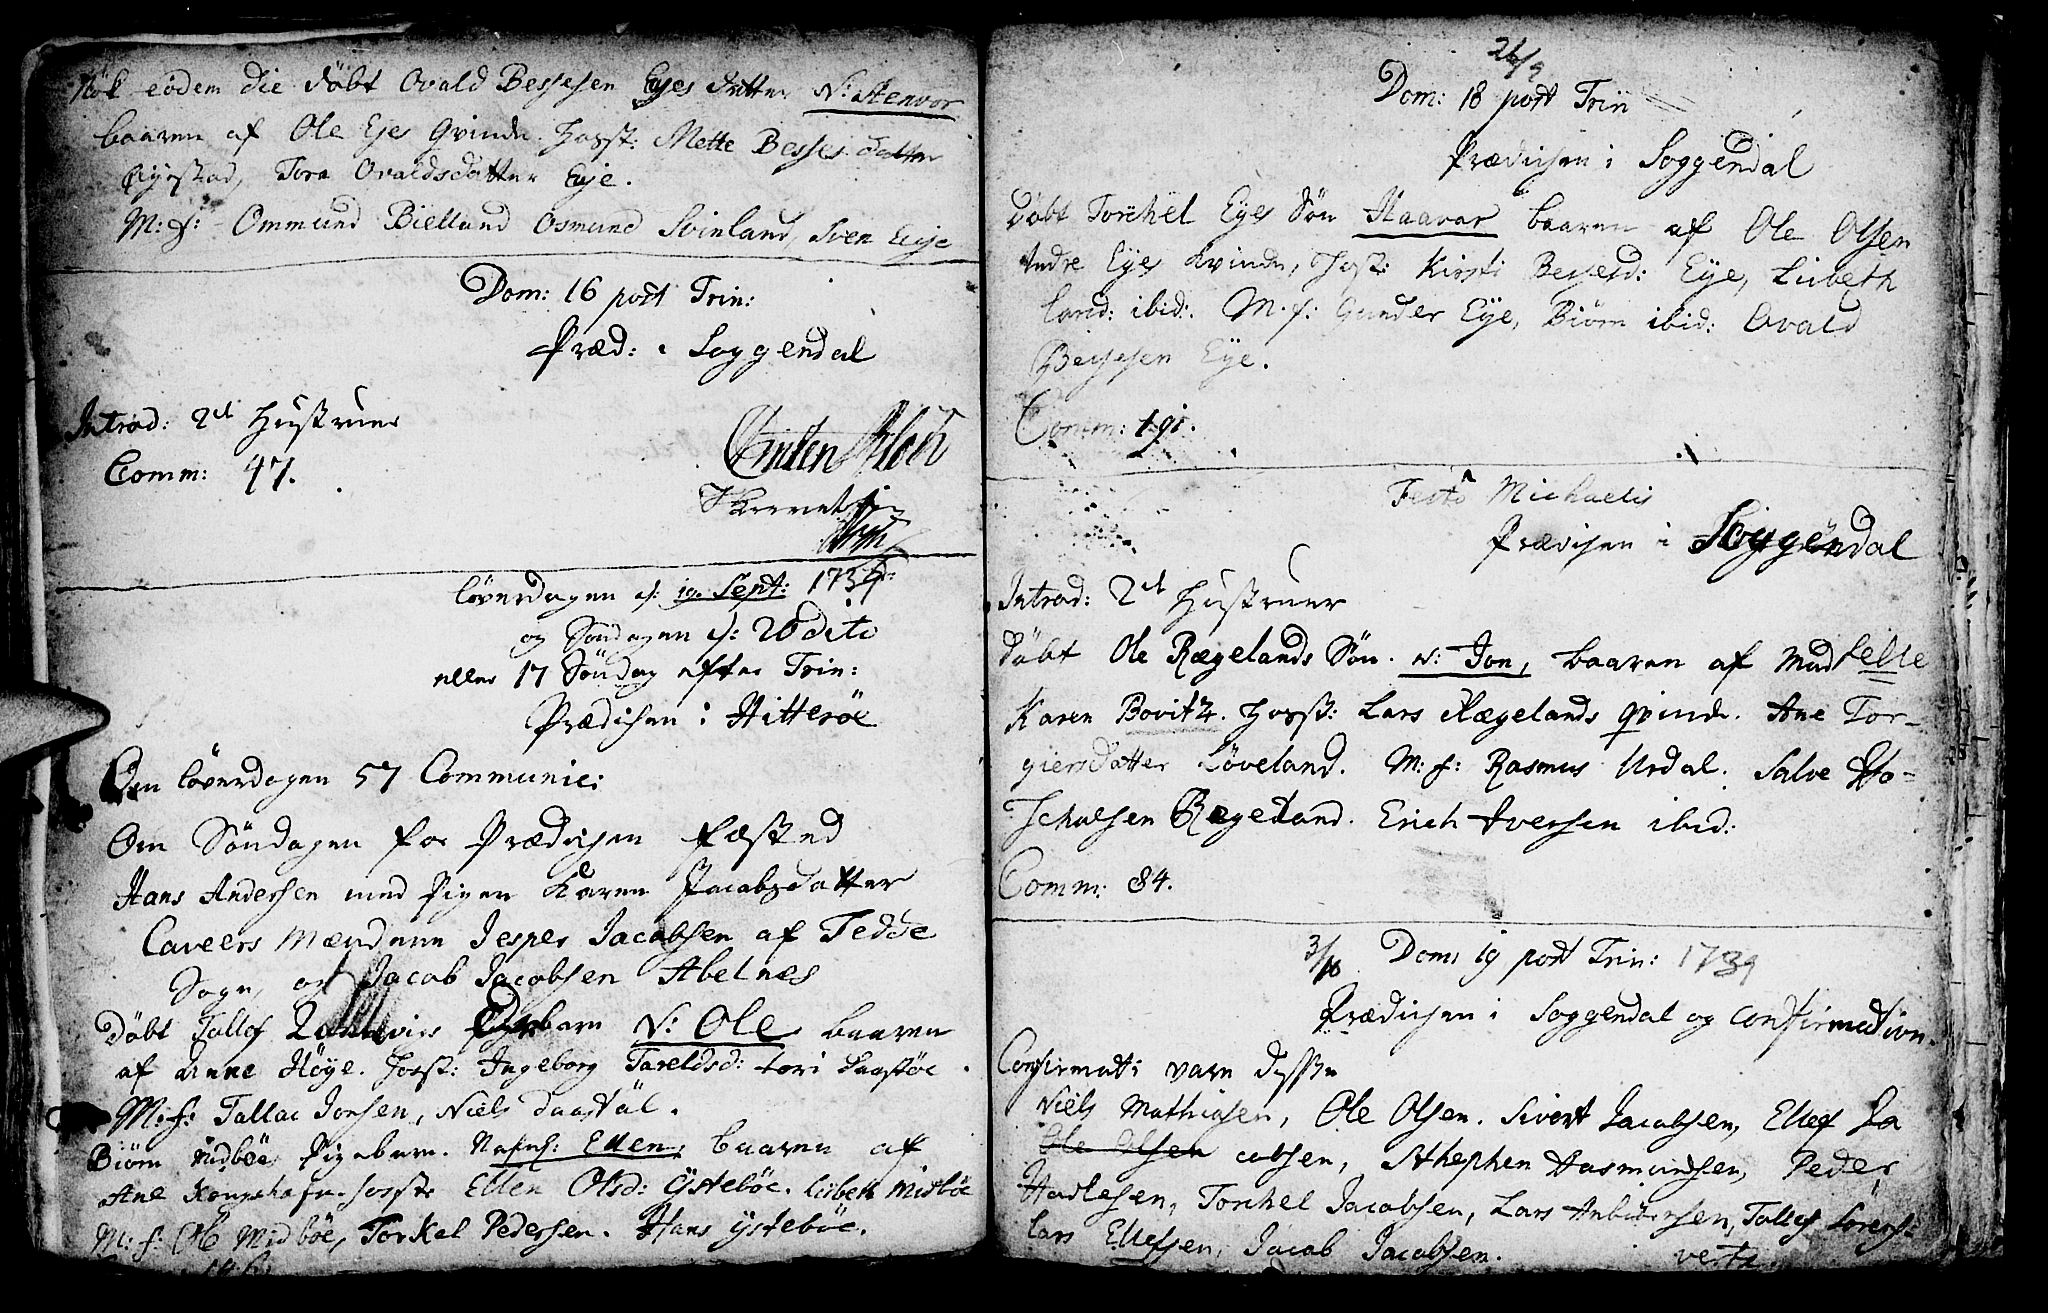 Nok eodem die døbt Ovald Bessesen Eyes datter N: Stenvor
baaren af Ole Eyes Qvinde. Hosst: Mette Besses datter
Tore Ovaldsdatter Eye.
M: f: Ommund Bielland Osmund Svinland, Sven Eye
Dom: 16 post Trin:
Præd: i Soggendal
Introd: 2de Hustruer
Comm: 47.
løverdagen d: 19. Sept: 1739
og Søndagen d: 20 dito
eller 17 Søndag efter Trin:
Prædichen i Hitterøe
Om løverdagen 57 Communic:
Om Søndagen for Prædichen fæsted
Hans Andersen med Pigen Karen Jacobsdatter
Caveers Mændene Jesper Jacobsen af Fedde
Sogn, og Jacob Jacobsen Abelnes
døbt Tallef barn N: Ole baaren
af Anne Høye. Hosst: Ingeborg Tareldsd: Tori
M: f: Tallac Jonsen, Niels
Biørn Midbøe Pigebarn. Nafnl: Ellen, baaren af
Ane Kongshafn. Hosst: Ellen Olsd: Ystebøe. Lisbet Midbøe
M: f: Ole Midbøe, Torkel Pedersen. Hans Ystebøe.
26/9
Dom: 18 post Trin
Prædichen i Soggendal
døbt Torchel Eyes Søn Haavar baaren af Ole Olsen
Indre Eyes Kvinde, Hosst: Kirsti Bessesd: Eye, Lisbeth
ibid: M: f: Gunder Eye, Biørn ibid: Ovald
Bessesen Eye.
Comm: 191.
Festo Michaelis
Prædichen i Soggendal
Introd: 2de Hustruer
døbt Ole Rægelands Søn. N: Jon, baaren af Mad
Karen Bovitz. Hosst: Lars Rægelands qvinde. Ane Tor-
giersdatter Løveland. M: f: Rasmus Urdal. Salve Ho-
Rægeland. Erich Iversen ibid:
Comm: 84.
3/10 Dom: 19 post Trin: 1739
Prædichen i Soggendal og Confirmation.
Confirmati vare disse
Niels Mathiasen, Ole Olsen. Sivert Jacobsen, Ellef Ja
Ole Olsen cobsen, Sthephen Aasmundsen, Peder
Torchel Jacobsen, Lars Anbiørnsen, Tallef Sørens:
Lars Ellefsen, Jacob Jacobsen.
verte